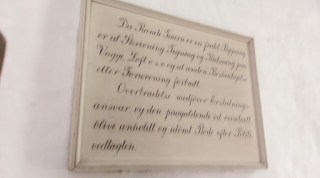 Da Runde Taarn er en fredet Bygning
er al Skrivning, Tegning og Ridsning paa
Vægge, Loft o s v og al anden Beskadigelse
eller Forurening forbudt.
Overtrædelse medfører Erstatnings-
ansvar, og den paagældende vil eventuelt
blive anholdt og idømt Bøde efter Politi-
vedtægten.